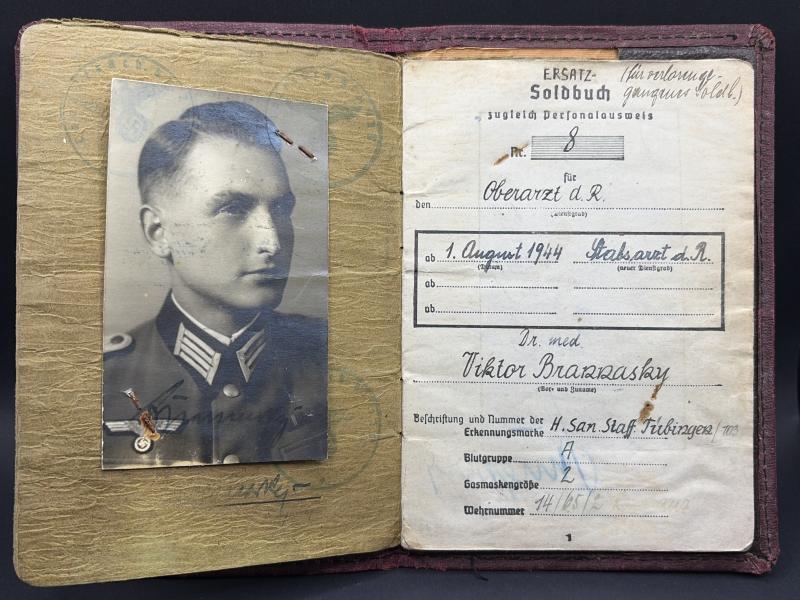 ERSATZ- (für verlorenge-
Soldbuch gangenes Soldb.)
zugleich Personalausweis
Nr. 8
für
den Oberarzt d. R.
(Dienstgrad)
ab 1. August 1944 Stabsarzt d. R.
(Datum) (neuer Dienstgrad)
ab
ab
Dr. med.
Viktor
(Vor- und Zuname)
Beschriftung und Nummer der
Erkennungsmarke H. San. Staff. Tübingen/103
Blutgruppe A
Gasmaskengröße 2
Wehrnummer 14/65/2
1